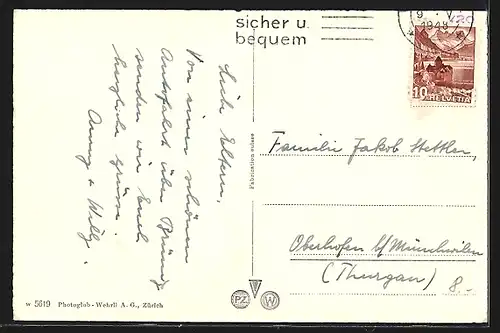 sicher u.
bequem
1948
10
HELVETIA
Liebe Eltern,
Von einer schönen
Autofahrt über Brünig
senden wir Euch
herzliche Grüsse.
Anny + Willy.
Fabrication suisse
Familie Jakob Stettler,
Oberhofen b/Münchwilen
(Thurgau) 8.-
PZ W
W 5619 Photoglob-Wehrli A. G., Zürich